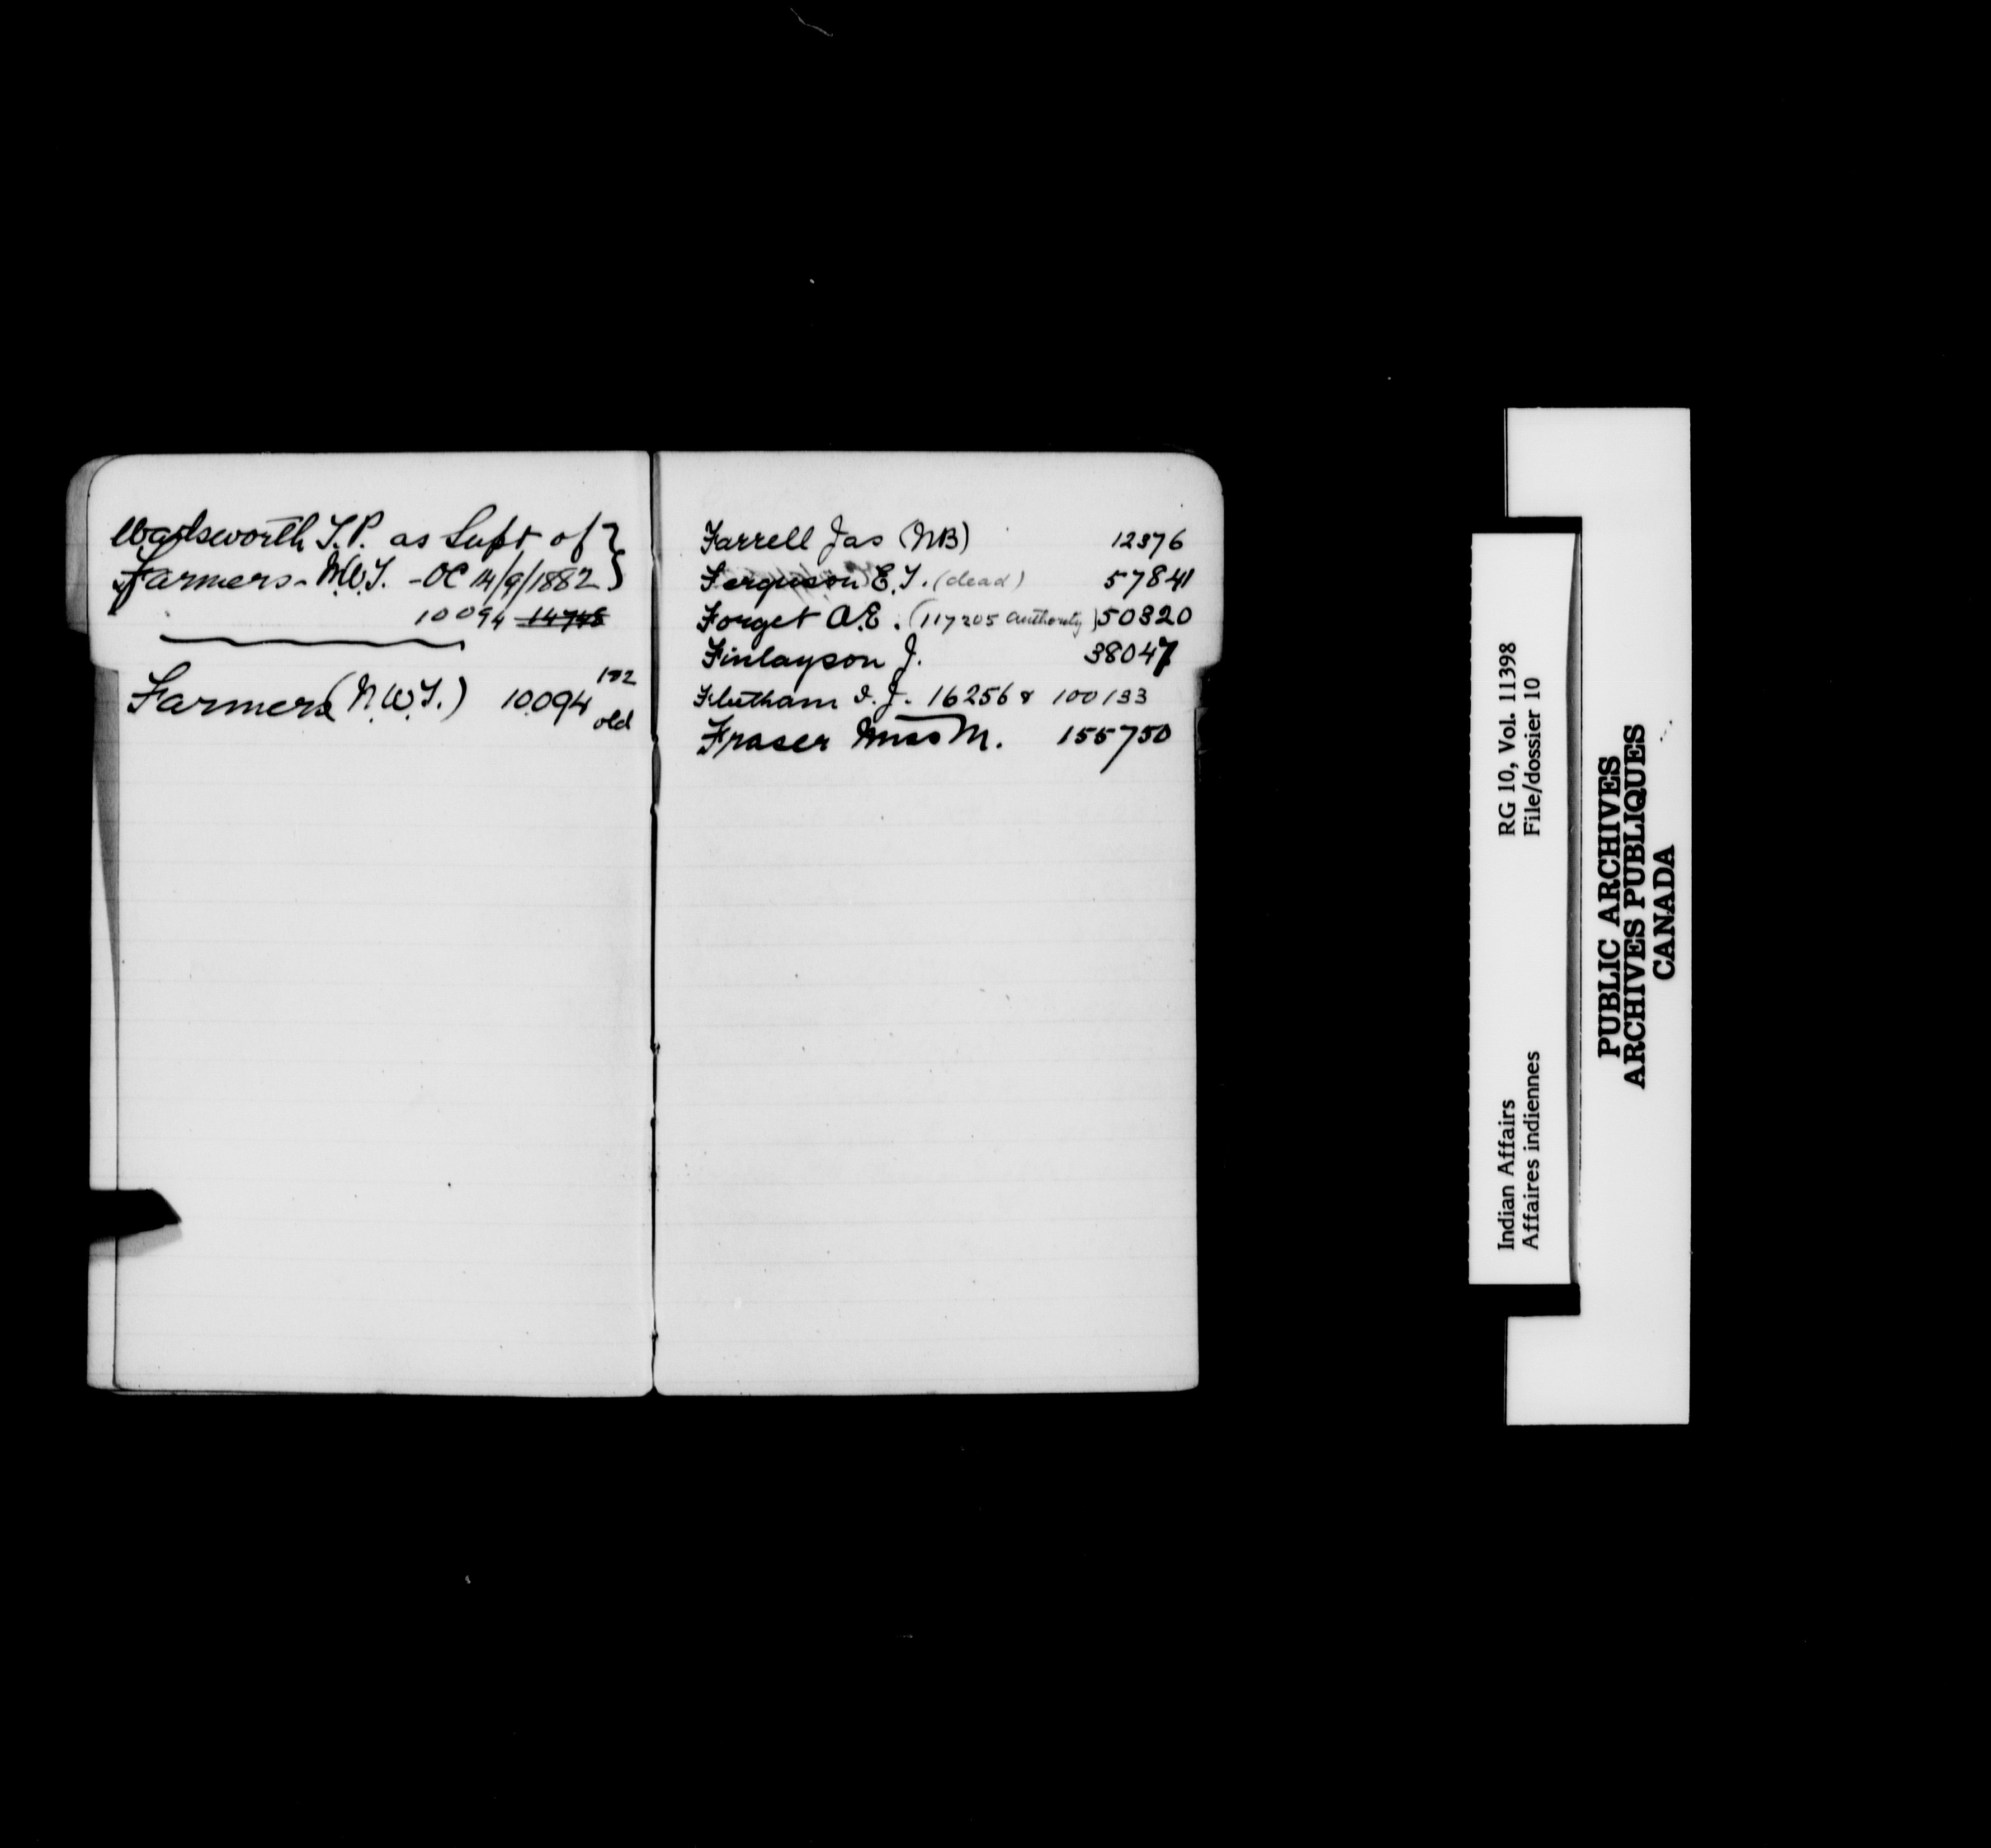 Wadsworth T.P. as Supt of }
Farmers - N.W.T. - OC 14/9/1882 }
10094 14748
Farmers (N.W.T.) 10094 1 & 2
old
Farrell Jas (NB) 12376
Ferguson E.T. (dead) 57841
Forget A.E. (117205 Authority) 50320
Finlayson J. 38047
J. 16256 & 100133
Fraser Miss M. 155750
Indian Affairs RG 10, Vol. 11398
Affaires indiennes File/dossier 10
PUBLIC ARCHIVES
ARCHIVES PUBLIQUES
CANADA